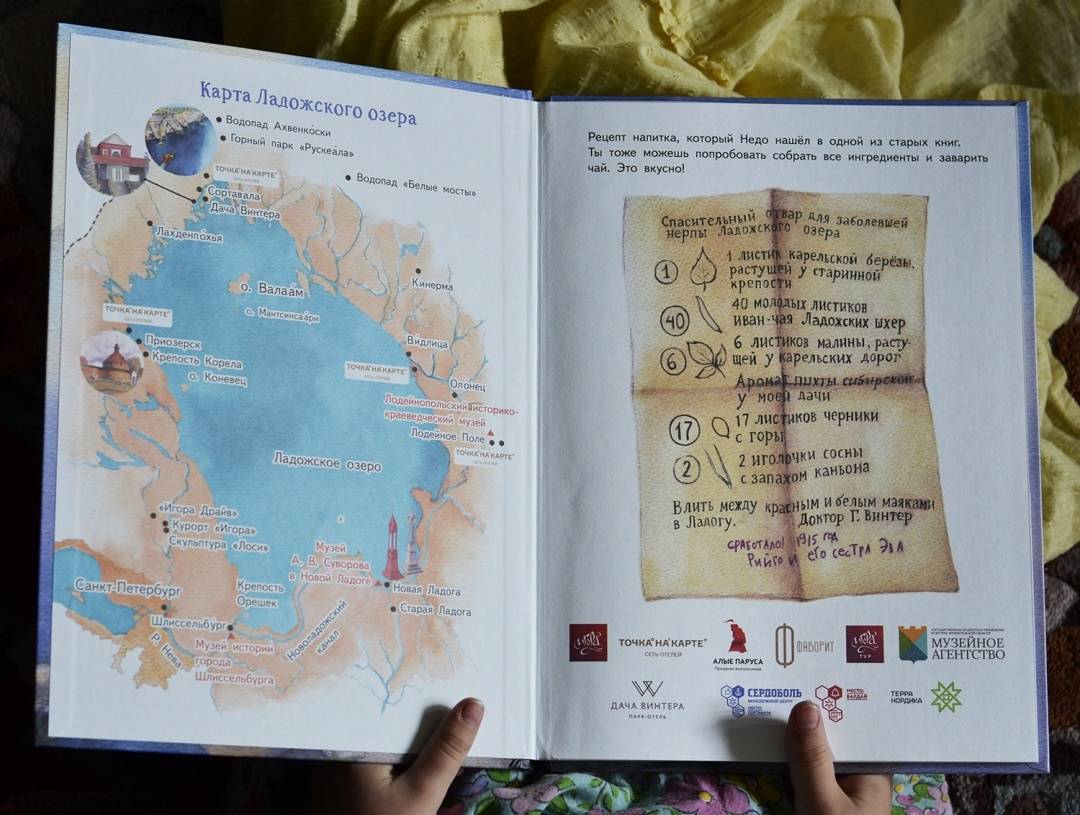 Карта Ладожского озера
Водопад Ахвенко́ски
Горный парк «Рускеа́ла»
ТОЧКА НА КАРТЕ
СЕТЬ ОТЕЛЕЙ
Водопад «Белые мосты»
Сортава́ла
Дача Винтера
Лахденпо́хья
о. Валаа́м
о. Мантсинсаа́ри
Кинерма
ТОЧКА НА КАРТЕ
СЕТЬ ОТЕЛЕЙ
Приозерск
Крепость Корела
о. Коневец
Ви́длица
ТОЧКА НА КАРТЕ
СЕТЬ ОТЕЛЕЙ
Оло́нец
Лодейнопольский историко-
краеведческий музей
Лодейное Поле
ТОЧКА НА КАРТЕ
СЕТЬ ОТЕЛЕЙ
Ладожское озеро
«Игора Драйв»
Курорт «Игора»
Скульптура «Лоси»
Музей
А. В. Суворова
в Новой Ладоге
Санкт-Петербург
Крепость
Орешек
Новая Ладога
Старая Ладога
Шлиссельбург
Р. Нева
Новоладожский
канал
Музей истории
города
Шлиссельбурга
Рецепт напитка, который Недо нашёл в одной из старых книг.
Ты тоже можешь попробовать собрать все ингредиенты и заварить
чай. Это вкусно!
Спасительный отвар для заболевшей
нерпы Ладожского озера
1 1 листик карельской берёзы,
растущей у старинной
крепости
40 40 молодых листиков
иван-чая Ладожских шхер
6 6 листиков малины, расту-
щей у карельских дорог
Аромат пихты сибирской
у моей дачи
17 17 листиков черники
с горы
2 2 иголочки сосны
с запахом каньона
Влить между красным и белым маяками
в Ладогу. Доктор Г. Винтер
СРАБОТАЛО! 1915 год
Рийго и его сестра Эва
ИГОРА
ТОЧКА НА КАРТЕ
СЕТЬ ОТЕЛЕЙ
АЛЫЕ ПАРУСА
Праздник выпускников
ФАВОРИТ
ИГОРА
ТУР
МУЗЕЙНОЕ
АГЕНТСТВО
ДАЧА ВИНТЕРА
ПАРК-ОТЕЛЬ
СЕРДОБОЛЬ
МОЛОДЕЖНЫЙ ЦЕНТР
МЕСТО.
СОРТАВАЛА
МЕСТО.
ВАЛДАЙ
ТЕРРА
НОРДИКА